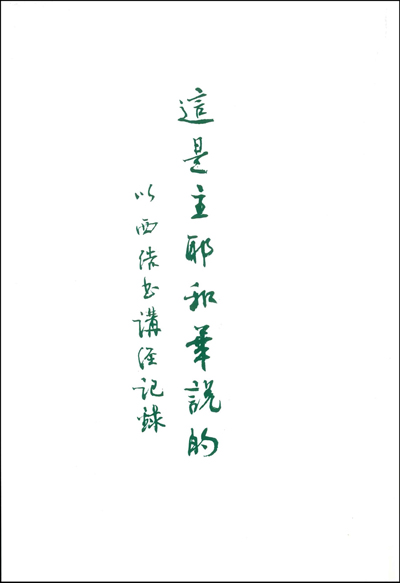 這是主耶和華說的
以西結书講经記錄